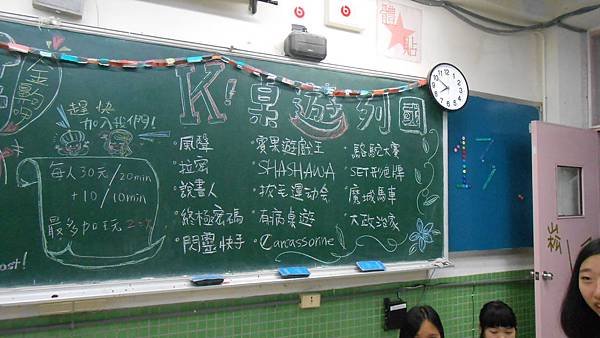 K! 桌遊列國
趕快
加入我們!
每人30元/20min
+10/10min
最多可玩
·風聲
·拉密
·說書人
·終極密碼
·閃靈快手
·蘋果遊戲王
·SHASHAWA
·拔毛運动会
·有病桌遊
·Carcassonne
·駱駝大賽
·SET形色牌
·魔城馬車
·大政治家
體
貼